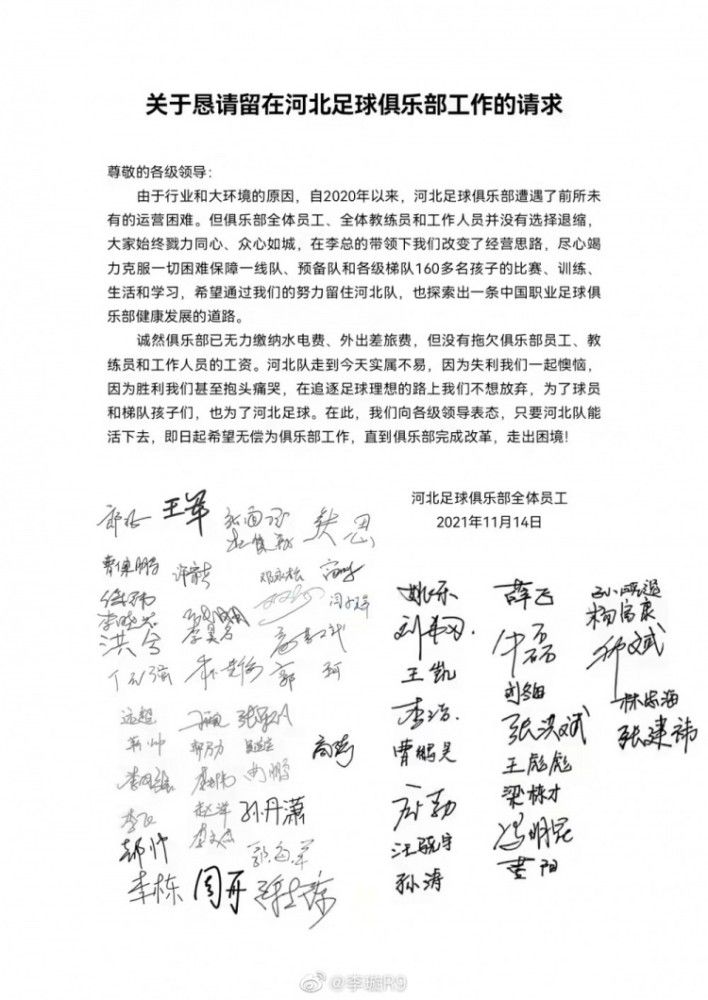 关于恳请留在河北足球俱乐部工作的请求
尊敬的各级领导：
由于行业和大环境的原因，自2020年以来，河北足球俱乐部遭遇了前所未
有的运营困难。但俱乐部全体员工、全体教练员和工作人员并没有选择退缩，
大家始终戮力同心、众心如城，在李总的带领下我们改变了经营思路，尽心竭
力克服一切困难保障一线队、预备队和各级梯队160多名孩子的比赛、训练、
生活和学习，希望通过我们的努力留住河北队，也探索出一条中国职业足球俱
乐部健康发展的道路。
诚然俱乐部已无力缴纳水电费、外出差旅费，但没有拖欠俱乐部员工、教
练员和工作人员的工资。河北队走到今天实属不易，因为失利我们一起懊恼，
因为胜利我们甚至抱头痛哭，在追逐足球理想的路上我们不想放弃，为了球员
和梯队孩子们，也为了河北足球。在此，我们向各级领导表态，只要河北队能
活下去，即日起希望无偿为俱乐部工作，直到俱乐部完成改革，走出困境！
河北足球俱乐部全体员工
2021年11月14日
王军
洪兮
郭 珂
远超
孙丹潇
李栋
周开
姚乐
王凯
李浩
曹鹏昊
孙涛
薛飞
牛磊
张洪斌
王彪彪
梁栋才
冯明昆
杨富康
林忠海
张建祎
@李璇R9